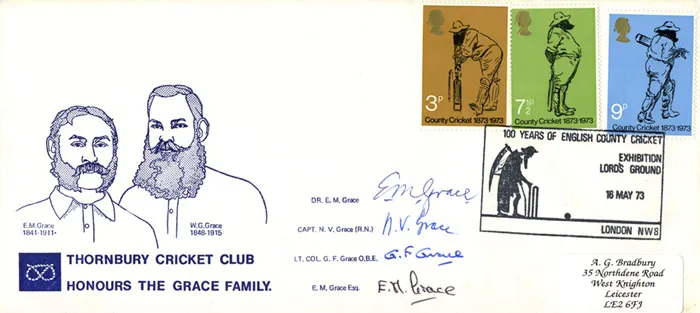 3p
County Cricket 1873-1973
7½p
County Cricket 1873-1973
9p
County Cricket 1873-1973
100 YEARS OF ENGLISH COUNTY CRICKET
EXHIBITION
LORD'S GROUND
16 MAY 73
LONDON NW8
E.M.Grace
1841-1911•
W.G.Grace
1848-1915
THORNBURY CRICKET CLUB
HONOURS THE GRACE FAMILY.
DR. E. M. Grace
E M Grace
CAPT. N. V. Grace (R.N.)
N.V. Grace
LT. COL. G. F. Grace O.B.E.
G.F Grace
E. M. Grace Esq.
E.M. Grace
A. G. Bradbury
35 Northdene Road
West Knighton
Leicester
LE2 6FJ